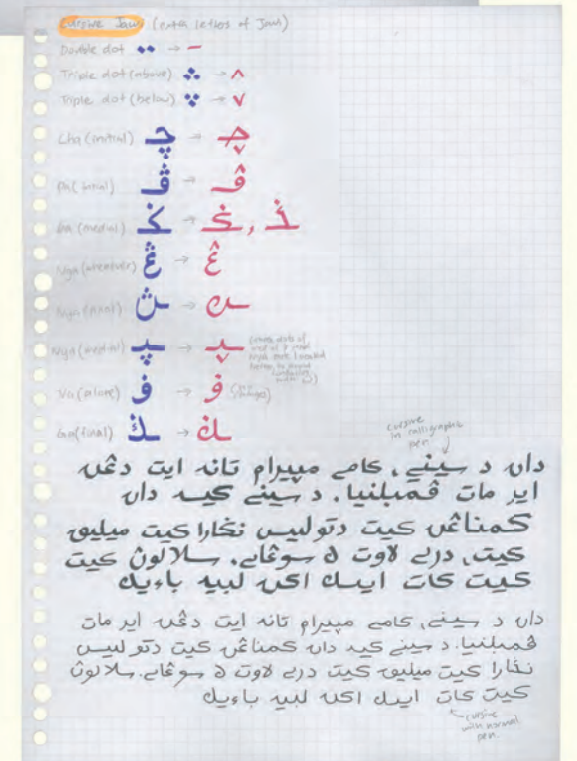 Cursive Jawi (extra letters of Jawi)
Double dot → –
Triple dot (above) → ^
Triple dot (below) → v
Cha (initial) چـ → چـ
pa (initial) ڤـ → ڤـ
Ga (medial) → ,
Nga (wherever) ڠ → ڠ
Nya (final) → 
Nya (medial) → 
Va (alone) ۏ → ۏ
Ga (final) → 
cursive
in calligraphic
pen
دان د سيني، كامي مڽيرام تانه ايت دڠن
اير مات ڤمبلنيا. د سيني كيت دان
كمناڠن كيت دتوليس نڬارا كيت ميليق
كيت، دري لاوت ك سوڠاي. سلالون كيت
كيت كات اكن لبيه باءيك
دان د سيني، كامي مڽيرام تانه ايت دڠن اير مات
ڤمبلنيا. د سيني كيت دان كمناڠن كيت دتوليس
نڬارا كيت ميليق كيت دري لاوت ك سوڠاي. سلالون
كيت كات اكن لبيه باءيك
cursive
with normal
pen.